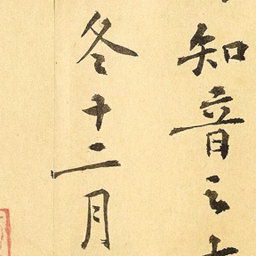 知音之
冬十二月